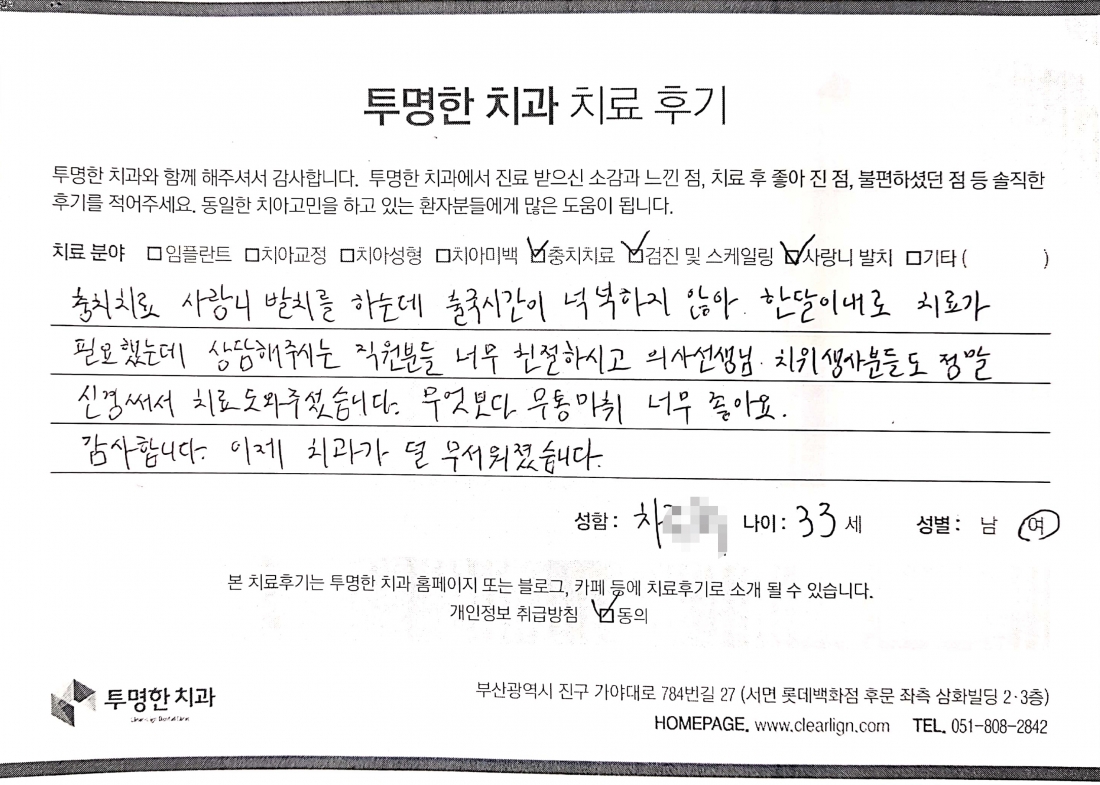 투명한 치과 치료 후기
투명한 치과와 함께 해주셔서 감사합니다. 투명한 치과에서 진료 받으신 소감과 느낀 점, 치료 후 좋아 진 점, 불편하셨던 점 등 솔직한
후기를 적어주세요. 동일한 치아고민을 하고 있는 환자분들에게 많은 도움이 됩니다.
치료 분야 □임플란트 □치아교정 □치아성형 □치아미백 ☑충치치료 ☑검진 및 스케일링 ☑사랑니 발치 □기타 ( )
충치치료 사랑니 발치를 하는데 출국시간이 넉넉하지 않아. 한달이내로 치료가
필요했는데 상담해주시는 직원분들 너무 친절하시고 의사선생님. 치위생사분들도 정말
신경써서 치료도와주셨습니다. 무엇보다 무통마취 너무 좋아요.
감사합니다. 이제 치과가 덜 무서워졌습니다.
성함 : 차 나이 : 33 세 성별 : 남 여
본 치료후기는 투명한 치과 홈페이지 또는 블로그, 카페 등에 치료후기로 소개 될 수 있습니다.
개인정보 취급방침 ☑동의
투명한 치과
부산광역시 진구 가야대로 784번길 27 (서면 롯데백화점 후문 좌측 삼화빌딩 2·3층)
HOMEPAGE. www.clearlign.com TEL. 051-808-2842